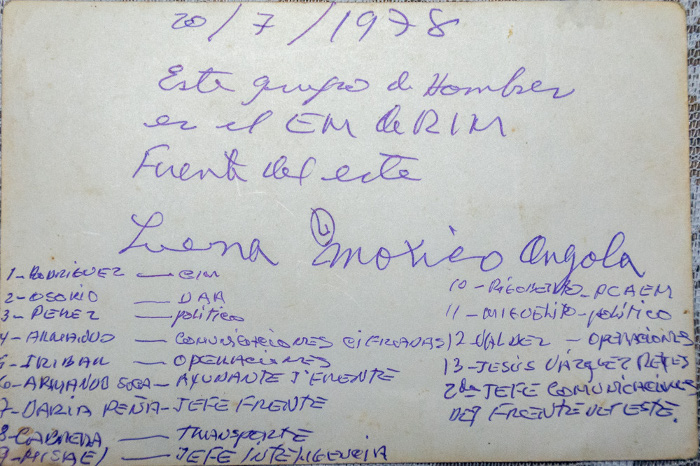 20/7/1978
Este grupo de Hombres
es el EM de RIM
Fuente del este
Luena Moxico Angola
1-RODRIGUEZ — CIM
2-OSORIO — DAA
3-PEREZ — político
4-ARMANDO — COMUNICACIONES CIFRADAS
5-IRIBAR — OPERACIONES
6-ARMANDO SOSA-AYUDANTE J'FRENTE
7-DARIA PEÑA-JEFE FRENTE
8-CABRERA — TRANSPORTE
9-MISAEL — JEFE INTELIGENCIA
10-PCAEM
11-MIGUELITO-político
12 VALDEZ — OPERACIONES
13-JESÚS VÁZQUEZ REYES
2do JEFE COMUNICACIONES
DEL FRENTE DEL ESTE.